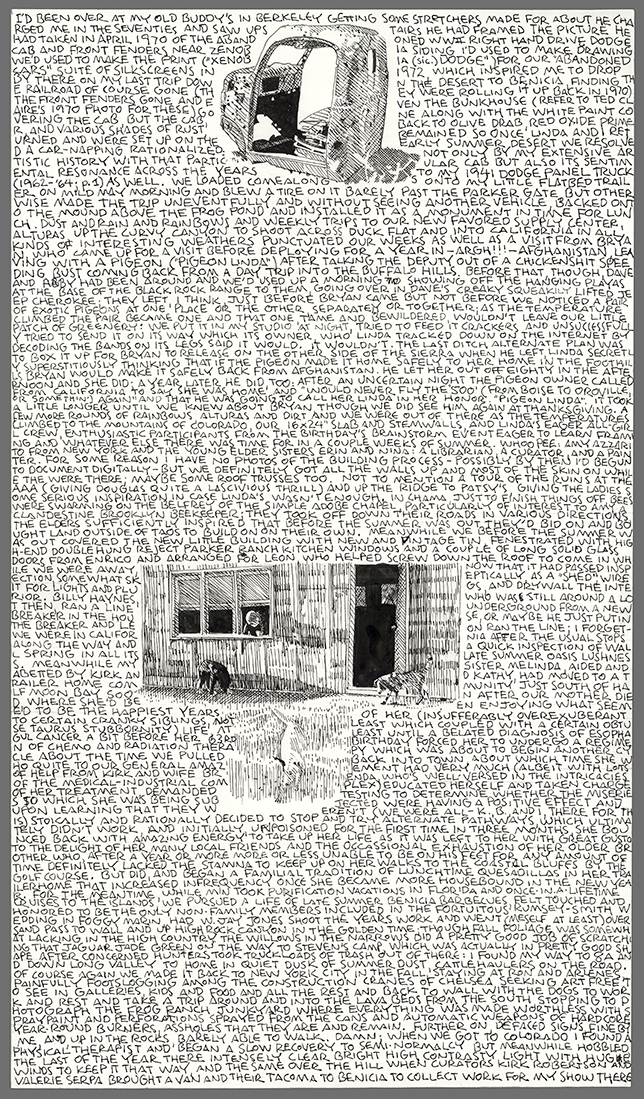 I'D BEEN OVER AT MY OLD BUDDY'S IN BERKELEY GETTING SOME STRETCHERS MADE FOR ABOUT HE CHA
RGED ME IN THE SEVENTIES AND SAW UPS TAIRS HE HAD FRAMED THE PICTURE HE
HAD TAKEN IN APRIL 1970 OF THE ABAND ONED WWII RIGHT HAND DRIVE DODGE
CAB AND FRONT FENDERS NEAR ZENOB IA SIDING I'D USED TO MAKE DRAWING
WE'D USED TO MAKE THE PRINT ("XENOB IA (SIC.) DODGE") FOR OUR 'ABANDONED
CARS' SUITE OF SILKSCREENS IN 1972, WHICH INSPIRED ME TO DROP
BY THERE ON MY LAST TRIP DOW N THE DESERT TO BENICIA FINDING TH
E RAILROAD OF COURSE GONE (TH EY WERE ROLLING IT UP BACK IN 1970)
THE FRONT FENDERS GONE AND E VEN THE BUNKHOUSE (REFER TO TED CL
AIRES 1970 PHOTO FOR THESE) GO NE ALONG WITH THE WHITE PAINT CO
VERING THE CAB BUT THE COLO BACK TO OLIVE DRAB RED OXIDE PRIME
R, AND VARIOUS SHADES OF RUST REMAINED SO ONCE LINDA AND I RET
URNED AND WERE SET UP ON THE EARLY SUMMER DESERT WE RESOLVE
D A CAR-NAPPING RATIONALIZED NOT ONLY BY MY EXTENSIVE AR
TISTIC HISTORY WITH THAT PARTIC ULAR CAB BUT ALSO ITS SENTIM
ENTAL RESONANCE ACROSS THE YEARS TO MY 1941 DODGE PANEL TRUCK
(1962-'64; R.I.) AS WELL. WE LOADED COMEALONG ONTO MY LITTLE FLATBED TRAIL
ER ON A COLD MAY MORNING AND BLEW A TIRE ON IT BARELY PAST THE PARKER GATE BUT OTHER
WISE MADE THE TRIP UNEVENTFULLY AND WITHOUT SEEING ANOTHER VEHICLE, BACKED ONT
O THE MOUND ABOVE THE FROG POND AND INSTALLED IT AS A MONUMENT IN TIME FOR LUN
CH. DUST AND RAIN AND RAINBOWS AND WEEKLY TRIPS TO OUR NEW FAVORED SUPPLY CENTER,
ALTURAS UP THE CURVY CANYON TO SHOOT ACROSS DUCK FLAT AND INTO CALIFORNIA IN ALL
KINDS OF INTERESTING WEATHERS PUNCTUATED OUR WEEKS AS WELL AS A VISIT FROM BRYA
N WHO CAME UP FOR A VISIT BEFORE DEPLOYING FOR A YEAR IN—ARGH!!!—AFGHANISTAN, LEA
VING WITH A PIGEON ("PIGEON LINDA") AFTER TALKING THE DEPUTY OUT OF A CHICKENSHIT SPEE
DING BUST COMING BACK FROM A DAY TRIP INTO THE BUFFALO HILLS. BEFORE THAT THOUGH, DAVE
AND HAD BEEN AROUND AND WE'D USED UP A MORNING TO SHOWING OFF THE HANGING PLAYAS
AT THE BASE OF THE BLACK ROCK RANGE TO THEM GOING OVER IN DAVE'S CREAKY SQUEAKILY LIFTED JE
EP CHEROKEE; THEY LEFT, I THINK, JUST BEFORE BRYAN CAME BUT NOT BEFORE WE NOTICED A PAIR
OF EXOTIC PIGEONS AT ONE PLACE OR THE OTHER, SEPARATELY OR TOGETHER; AS THE TEMPERATURE
CLIMBED THE PAIR BECAME ONE AND THAT ONE TAME AND BEWILDERED, WOULDN'T LEAVE OUR LITTLE
PATCH OF GREENERY: WE PUT IT IN MY STUDIO AT NIGHT, TRIED TO FEED IT CRACKERS, AND UNSUCCESSFULL
Y TRIED TO SEND IT ON ITS WAY WHICH ITS OWNER, WHO LINDA TRACKED DOWN ON THE INTERNET BY
DECODING THE BANDS ON ITS LEGS SAID IT WOULD. IT WOULDN'T. THE LAST DITCH ALTERNATE PLAN WAS
TO BOX IT UP FOR BRYAN TO RELEASE ON THE OTHER SIDE OF THE SIERRA WHEN HE LEFT. LINDA SECRETL
Y SUPERSTITIOUSLY THINKING THAT IF THE PIGEON MADE IT HOME SAFELY TO HER HOME IN THE FOOTHILL
S, BRYAN WOULD MAKE IT SAFELY BACK FROM AFGHANISTAN. HE LET HER OUT OFF EIGHTY IN THE AFTE
RNOON AND SHE DID; A YEAR LATER HE DID TOO; AFTER AN UNCERTAIN NIGHT THE PIGEON OWNER CALLED
FROM CALIFORNIA TO SAY SHE WAS HOME AND "WOULD NEVER FLY THE '500' (FROM BOISE TO OROVILLE,
OR SOMETHIN') AGAIN" AND THAT HE WAS GOING TO CALL HER LINDA IN HER HONOR. "PIGEON LINDA". IT TOOK
A LITTLE LONGER UNTIL WE KNEW ABOUT BRYAN THOUGH WE DID SEE HIM AGAIN AT THANKSGIVING. A
FEW MORE ROUNDS OF RAINBOWS, ALTURAS, AND DIRT AND WE WERE OUT OF THERE AS THE TEMPERATURES
CLIMBED TO THE MOUNTAINS OF COLORADO, OUR 16X24" SLAB AND STEMWALLS, AND LINDA'S EAGER ALL-GIR
L CREW, ENTHUSIASTIC PARTICIPANTS FROM THE BIRTHDAY'S BRAINSTORM EVENT EAGER TO LEARN FRAMI
NG AND WHATEVER ELSE THERE WAS TIME FOR IN A COUPLE WEEKS OF SUMMER. WHOPEE. AMY AZZARI
TO FROM NEW YORK AND THE YOUNG ELDER SISTERS ERIN AND NINA: A LIBRARIAN, A CURATOR, AND A PAIN
TER. FOR SOME REASON I HAVE NO PHOTOS OF THE BUILDING PROCESS - POSSIBLY BY THEN I'D BEGUN
TO DOCUMENT DIGITALLY - BUT WE DEFINITELY GOT ALL THE WALLS UP AND MOST OF THE SKIN ON WHIL
E THE WERE THERE; MAYBE SOME ROOF TRUSSES TOO. NOT TO MENTION A TOUR OF THE RUINS AT THE
AAA (GIVING DOUGLAS QUITE A LASCIVIOUS THRILL) AND UP THE RIDGE TO PATSY'S GIVING THE LADIES S
OME SERIOUS INSPIRATION IN CASE LINDA'S WASN'T ENOUGH. IN CHAMA JUST TO FINISH THINGS OFF BEES
WERE SWARMING ON THE BELFREY OF THE SIMPLE ADOBE CHAPEL, PARTICULARLY OF INTEREST TO AMY, A
CLANDESTINE BROOKLYN BEEKEEPER; THEY TOOK OFF DOWN THEIR ROADS IN VARIOUS DIRECTIONS,
THE ELDERS SUFFICIENTLY INSPIRED THAT BEFORE THE SUMMER WAS OUT THEY'D BID ON AND BO
UGHT LAND OUTSIDE OF TAOS TO BUILD ON ON THEIR OWN. MEANWHILE WE BEFORE THE SUMMER W
AS OUT COVERED THE NEW LITTLE BUILDING WITH NEW AND VINTAGE TIN, FENESTRATED WITH HIG
H-END DOUBLE HUNG REJECT PARKER RANCH KITCHEN WINDOWS AND A COUPLE OF LONG SOLID GLASS
DOORS FROM ENRICO AND ARRANGED FOR LEON WHO HELPED SCREW DOWN THE ROOF TO COME IN WHI
LE WE WERE AWAY ON THAT IT HAD PASSED INSP
ECTION, SOMEWHAT SK EPTICALLY AS A "SHED" WIRE
IT FOR LIGHTS AND PLU GS, AND DRYWALL THE INTE
RIOR. BILLY HAYNES WHO WAS STILL AROUND A LO
T THEN, RAN A LINE UNDERGROUND FROM A NEW
BREAKER IN THE HOU SE, OR MAYBE HE JUST PUT IN
THE BREAKER AND LE ON RAN THE LINE; I FORGET.
WE WERE IN CALIFOR NIA AFTER THE USUAL STOPS
ALONG THE WAY AND A QUICK INSPECTION OF WAL
L SPRING IN ALL ITS LATE SUMMER OASIS LUSHNES
S. MEANWHILE MY SISTER MELINDA AIDED AND
ABETED BY KIRK AN D KATHY, HAD MOVED TO A T
RAILER HOME COM MUNITY JUST SOUTH OF HA
LF MOON BAY SOO N AFTER OUR MOTHER DIE
D WHERE SHE'D BE EN ENJOYING WHAT SEEM
ED TO BE THE HAPPIEST YEARS OF HER (INSUFFERABLY OVEREXUBERANT
TO CERTAIN CRANKY SIBLINGS, NOT LEAST WHICH COUPLED WITH A CERTAIN OBTU
SE TAURUS STUBBORNITY) LIFE, AT LEAST UNTIL A BELATED DIAGNOSIS OF ESOPHA
GUL CANCER A BIT BEFORE HER 63RD BIRTHDAY FORCED HER TO UNDERGO A REGIME
N OF CHEMO AND RADIATION THERA PY WHICH WAS ABOUT TO BEGIN ANOTHER CY
CLE ABOUT THE TIME WE PULLED BACK INTO TOWN ABOUT WHICH TIME SHE W
HO QUITE TO OUR GENERAL AMAZ EMENT HAD VERY MUCH (ALBEIT WITH LOTS
OF HELP FROM KIRK AND WIFE BR ENDA, WHO'S WELL-VERSED IN THE INTRICACIES
OF THE MEDICAL-INDUSTRIAL COM PLEX) EDUCATED HERSELF AND TAKEN CHARGE
OF HER TREATMENT DEMANDED TESTING TO DETERMINE WHETHER THE MISERIE
S TO WHICH SHE WAS BEING SUB JECTED WERE HAVING A POSITIVE EFFECT AND
UPON LEARNING THAT THEY W ERE NOT (WE WERE ALL - K, B, AND I, THERE FOR TH
IS) STOICALLY AND RATIONALLY DECIDED TO STOP AND TRY ALTERNATE PATHWAYS WHICH ULTIMA
TELY DIDN'T WORK, AND INITIALLY, UNPOISONED FOR THE FIRST TIME IN THREE MONTHS, SHE BOU
NCED BACK WITH AMAZING ENERGY TO TAKE UP HER LIFE AS IT WAS LEFT TO HER WITH GREAT GUSTO
TO THE DELIGHT OF HER MANY LOCAL FRIENDS AND THE OCCASIONAL EXHAUSTION OF HER ELDER BR
OTHER WHO, AFTER A YEAR OR MORE MORE OR LESS UNABLE TO BE ON HIS FEET FOR ANY AMOUNT OF
TIME DEFINITELY LACKED THE STAMINA TO KEEP UP ON HER WALKS TO THE COASTAL BLUFFS BY THE
GOLF COURSE. BUT DID, AND BEGAN A FAMILIAL TRADITION OF LUNCHTIME QUESADILLAS IN HER TRA
ILER HOME THAT INCREASED IN FREQUENCY ONCE SHE BECAME MORE HOUSEBOUND IN THE NEW YEA
R. FOR THE MEANTIME WHILE MIN TOOK PURIFICATION VACATIONS IN FLORIDA AND ONCE-IN-A-LIFETIME
CRUISES TO THE ISLANDS, WE PURSUED A LIFE OF LATE SUMMER BENICIA BARBECUES, FELT TOUCHED AND
HONORED TO BE THE ONLY NON-FAMILY MEMBERS INCLUDED IN THE FORTUITOUS RUMSEY-SMITH W
EDDING IN FOGGY MARIN, HAD M. JAY JONES SHOOT THE YEAR'S WORK, AND WENT (MESELF AT LEAST) OVER
SAND PASS TO WALL AND UP HIGH ROCK CANYON IN THE GOLDEN TIME, THOUGH FALL FOLIAGE WAS SOMEWH
AT LACKING IN THE HIGH COUNTRY THE WILLOWS IN THE NARROWS DID A PRETTY GOOD JOB OF SCRATCHI
NG THAT JAGUAR JADE GREEN ON THE WAY TO STEVENS CAMP WHICH WAS ACTUALLY IN PRETTY GOOD SH
APE AFTER CONCERNED HUNTERS TOOK TRUCKLOADS OF TRASH OUT OF THERE; I FOUND MY WAY TO GA AN
D DOWN LONG VALLEY TO HOME IN QUIET DUSK OF SUMMER DUST, CATTLEHAULERS ON THE ROAD
OF COURSE AGAIN WE MADE IT BACK TO NEW YORK CITY IN THE FALL, STAYING AT RON AND ARLENE'S,
PAINFULLY FOOTSLOGGING AMONG THE CONSTRUCTION CRANES OF CHELSEA SEEKING ART FREE IN
O SEE IN GALLERIES, KIDS AND FOOD AND ALL THE REST AND BACK TO WALL WITH THE DOGS TO WOR
K AND REST AND TAKE A TRIP AROUND AND INTO THE LAVA BEDS FROM THE SOUTH STOPPING TO P
HOTOGRAPH THE FROG RANCH JUNKYARD WHERE EVERYTHING WAS MADE WORTHLESS WITH
SPRAY PAINT AND PERFORATIONS SPRAYED FROM THE CANS AND AUTOMATIC WEAPONS OF HARDCORE
YEAR-ROUND BURNERS, ASSHOLES THAT THEY ARE AND REMAIN. FURTHER ON DEFACED SIGNS FINE BY
ME, AND UP IN THE ROCKS, BARELY ABLE TO WALK. DAMN; WHEN WE GOT TO COLORADO I FOUND A
PHYSICAL THERAPIST AND BEGAN A SLOW RECOVERY TO SEMI-NORMALCY BUT MEANWHILE HOBBLED
THE LAST OF THE YEAR THERE INTENSELY CLEAR BRIGHT HIGH CONTRASTY LIGHT WITH HUGE
WINDS TO KEEP IT THAT WAY, AND THE SAME OVER THE HILL WHEN CURATORS KIRK ROBERTSON AND
VALERIE SERPA BROUGHT A VAN AND THEIR TACOMA TO BENICIA TO COLLECT WORK FOR MY SHOW THERE